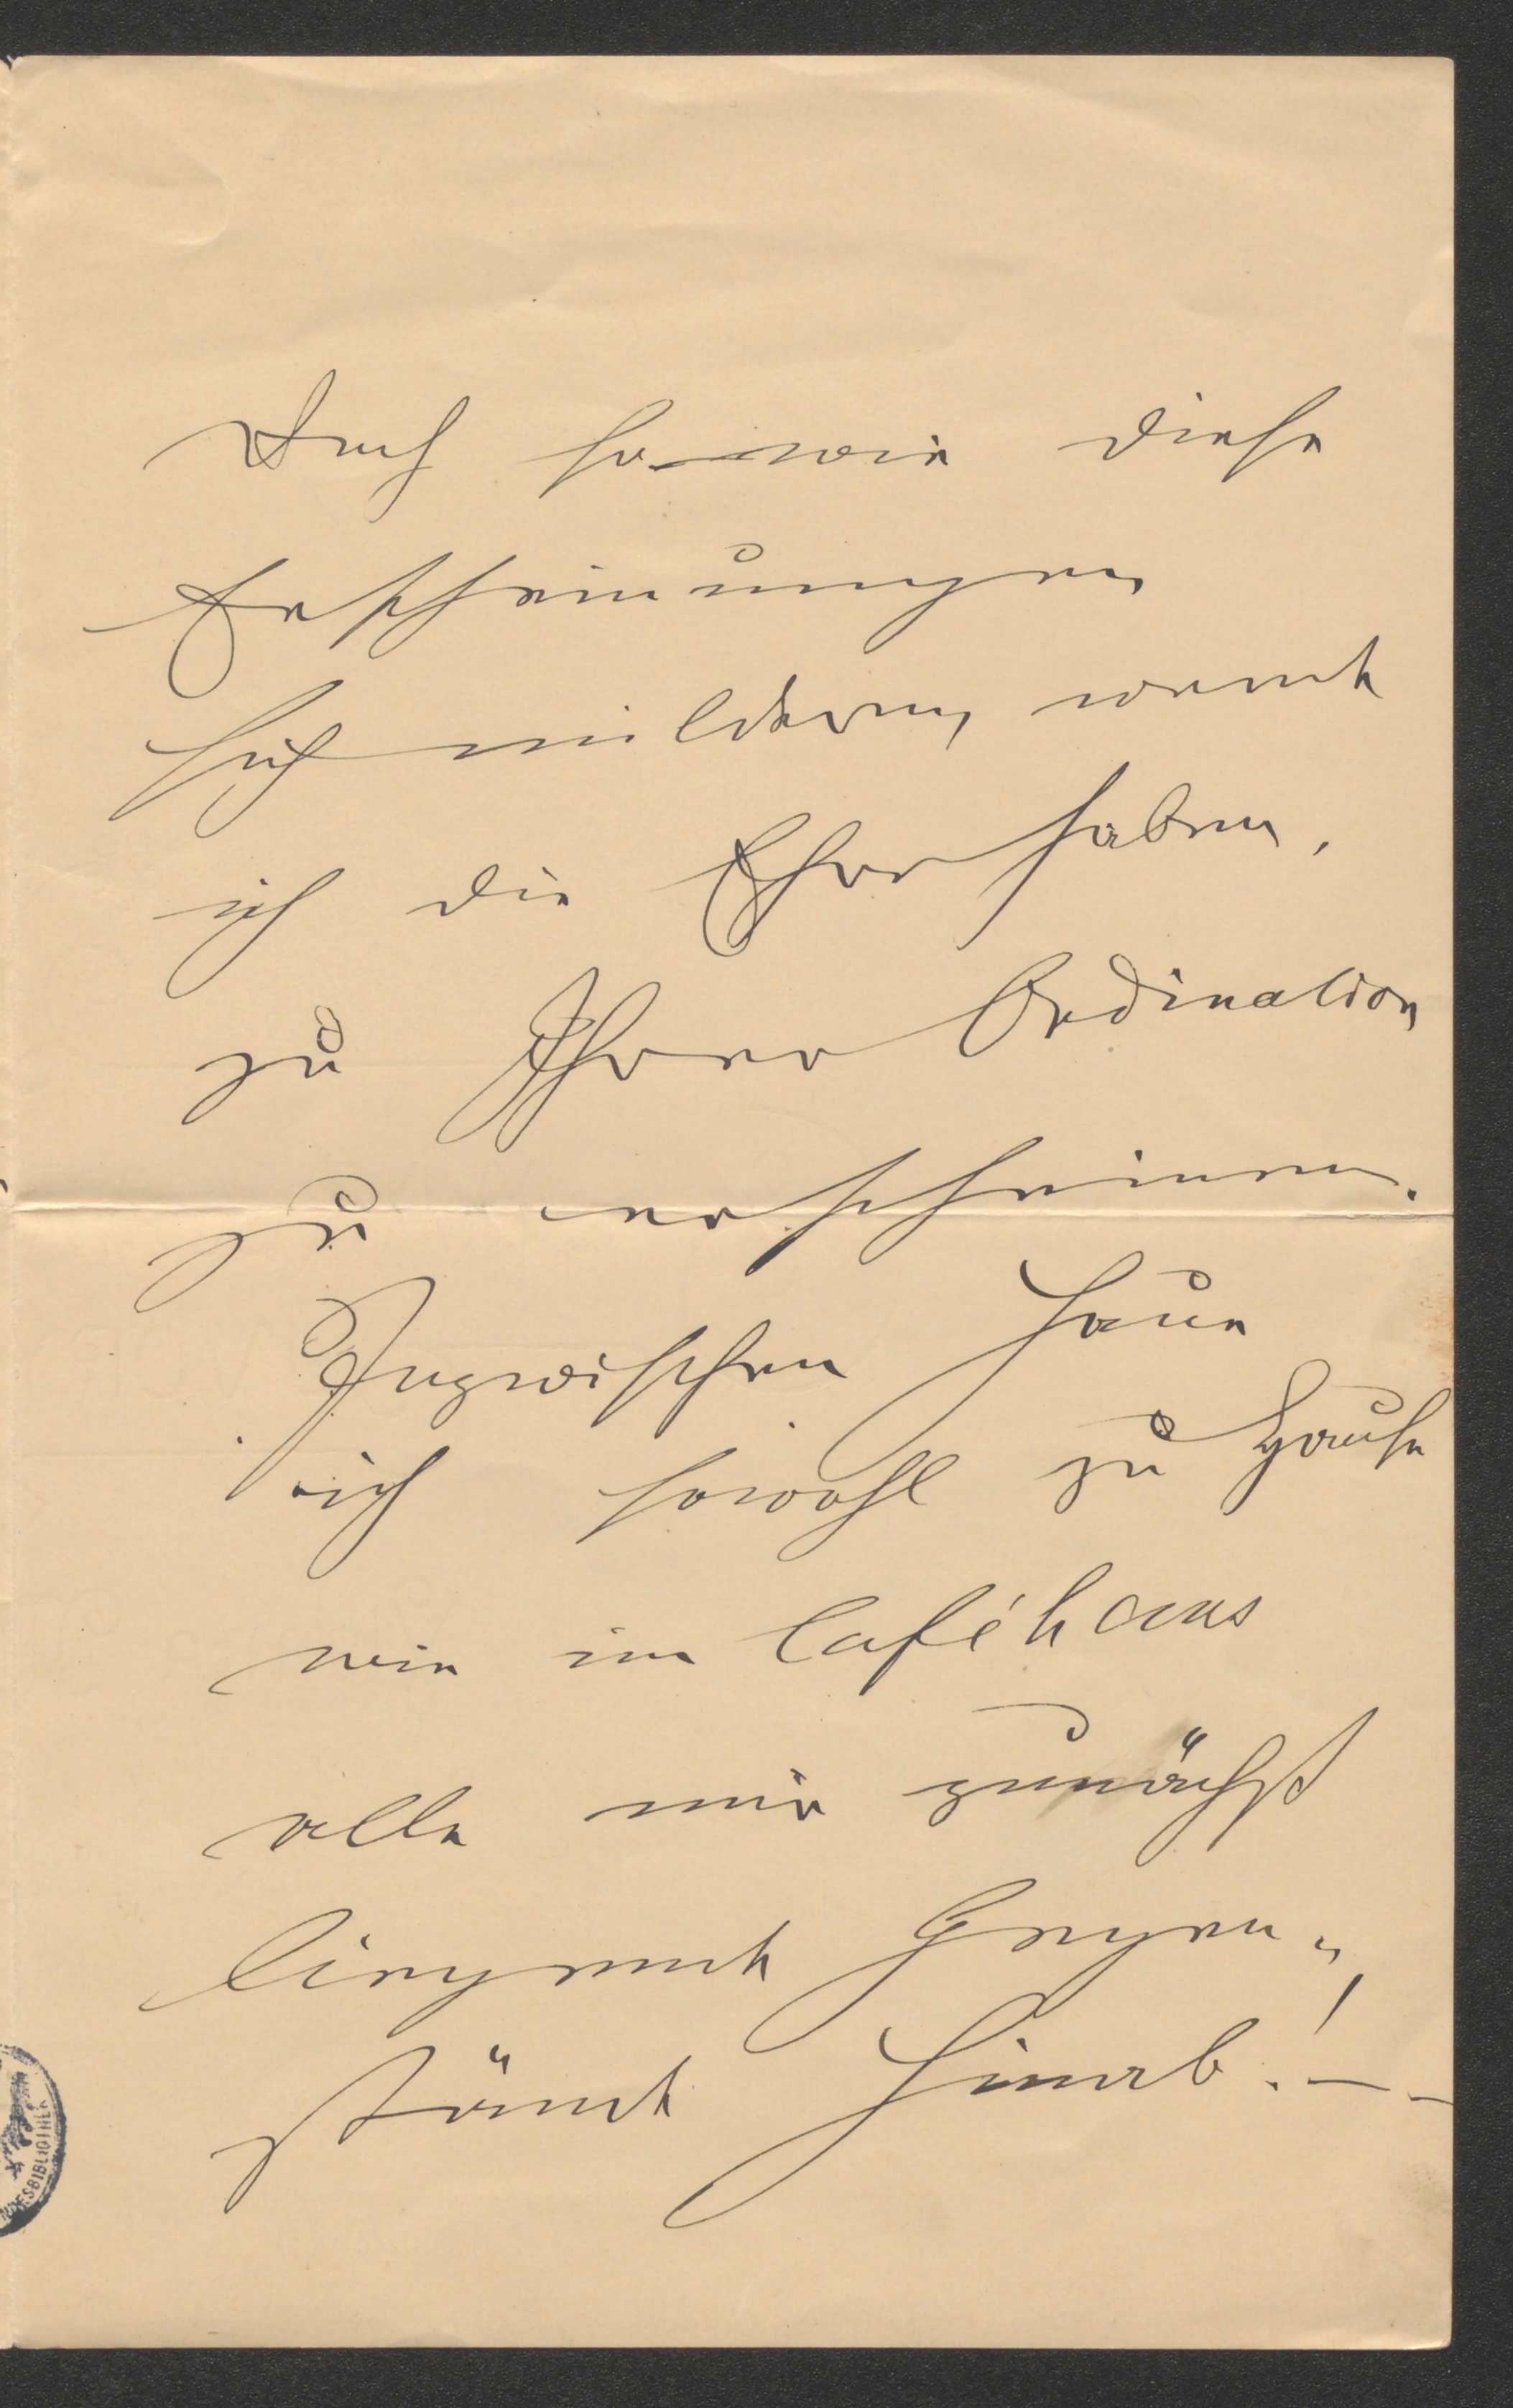 Doch sowie diese
Erscheinungen
sich mildern, werde
ich die Ehre haben,
zu Ihrer Ordination
zu erscheinen.
Inzwischen haue
ich sowohl zu Hause
wie im Caféhaus
alle mir zunächst
liegende Gegen„
stände hinab! – –